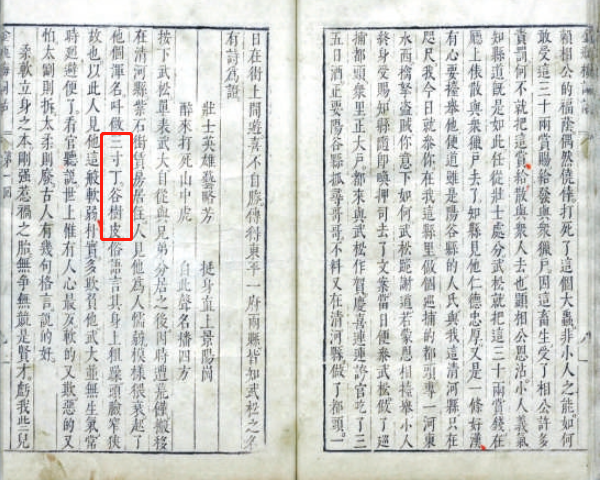 賴相公的福蔭偶然僥倖打死了這個大蟲非小人之能如何
敢受這三十兩賞賜給發與衆獵戶因這畜生受了相公許多
責罰何不就把這賞給散與衆人去也顯相公恩沾小人義氣
知縣道既是如此任從壯士處分武松就把這三十兩賞錢在
廳上俵散與衆獵戶去了知縣見他仁德忠厚又是一條好漢
有心要擡舉他便道雖是陽谷縣的人氏與我這清河縣只在
咫尺我今日就參你在我這縣里做個巡捕的都頭專一河東
水西擒拏盜賊你意下如何武松跪謝道若蒙恩相擡舉小人
終身受賜知縣隨即喚押司立了文案當日便參武松做了巡
捕都頭衆里正大戶都來與武松作賀慶喜連連誇官吃了三
五日酒正要陽谷縣抓尋哥哥不料又在清河縣做了都頭一
日在街上閒遊喜不自勝傳得東平一府兩縣皆知武松之名
有詩爲證
壯士英雄藝略芳 挺身直上景陽岡
醉來打死山中虎 自此聲名播四方
按下武松單表武大自從與兄弟分居之後因時遭荒饉搬移
在清河縣紫石街賃房居住人見他爲人懦弱模樣猥衰起了
他個渾名叫做三寸丁谷樹皮俗語言其身上粗躁頭臉窄狹
故也以此人見他這般軟弱朴實多欺負他武大並無生氣常
時廻避便了看官聽說世上惟有人心最歹軟的又欺惡的又
怕太剛則折太柔則廢古人有幾句格言說的好
柔軟立身之本剛强惹禍之胎無爭無競是賢才虧我些兒